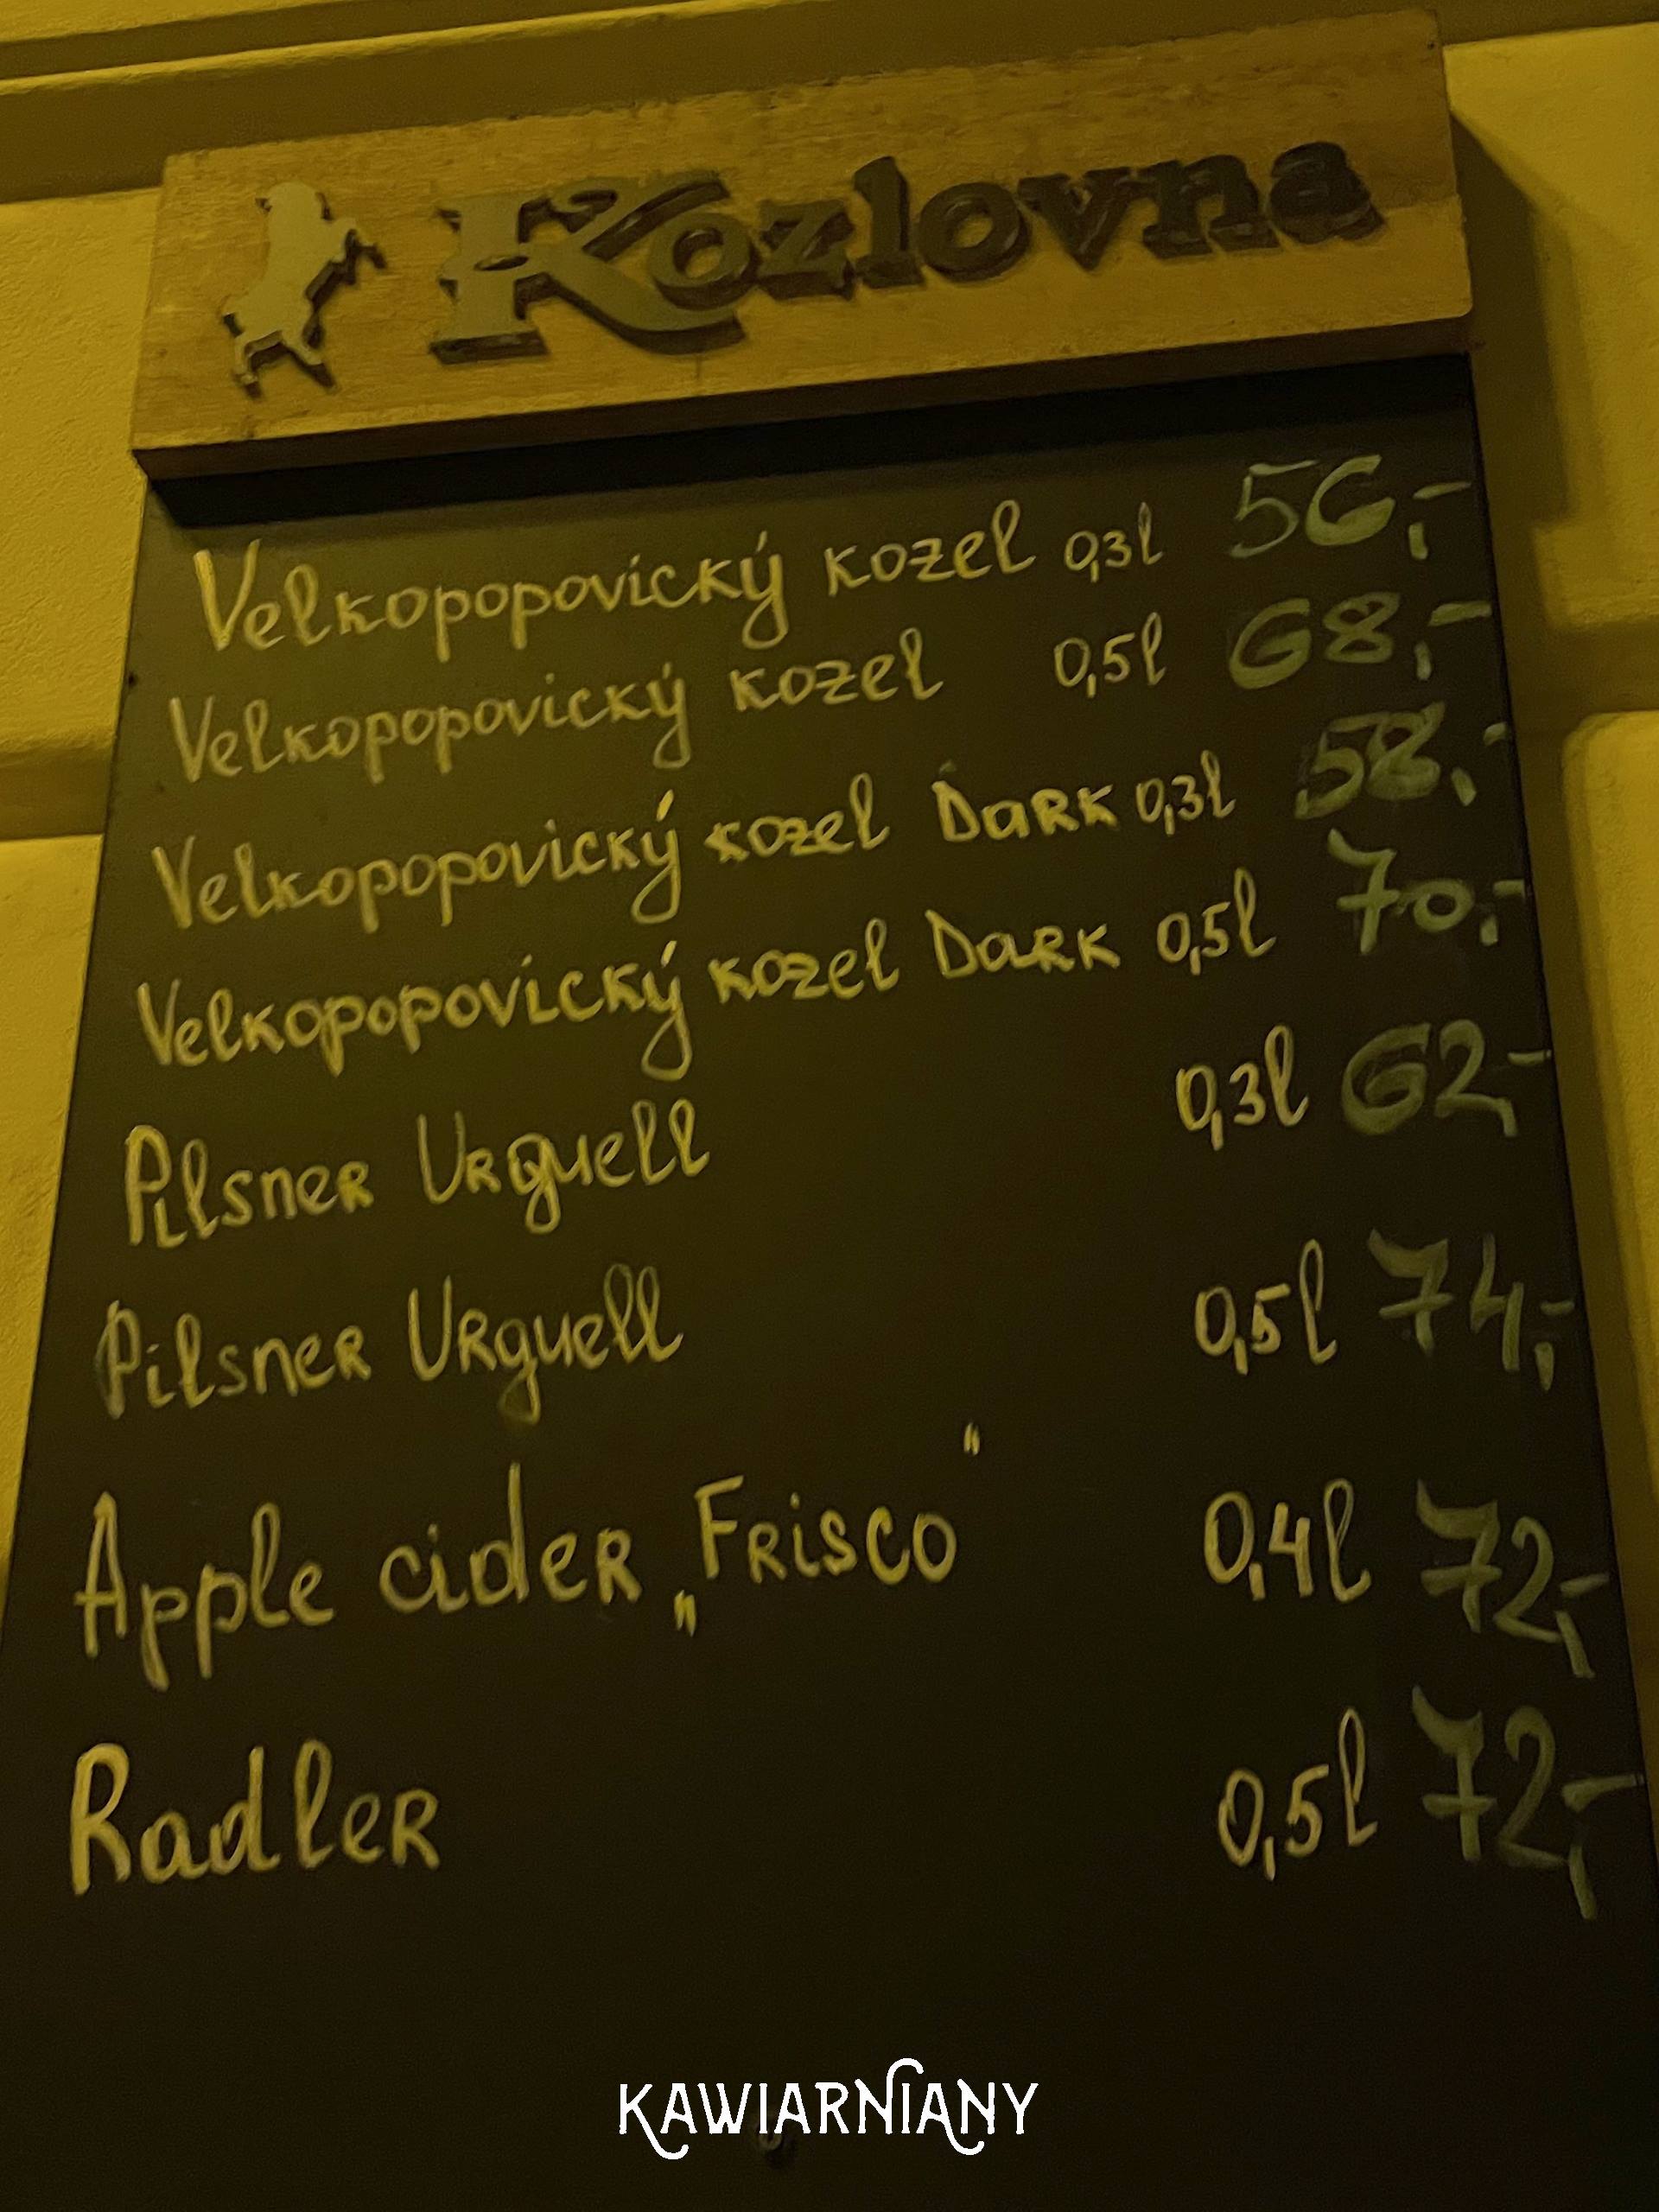 Kozlovna
Velkopopovický Kozel 0,3l 56,-
Velkopopovický Kozel 0,5l 68,-
Velkopopovický Kozel Dark 0,3l 58,-
Velkopopovický Kozel Dark 0,5l 70,-
Pilsner Urguell 0,3l 62,-
Pilsner Urguell 0,5l 74,-
Apple cider „Frisco" 0,4l 72,-
Radler 0,5l 72,-
KAWIARNIANY